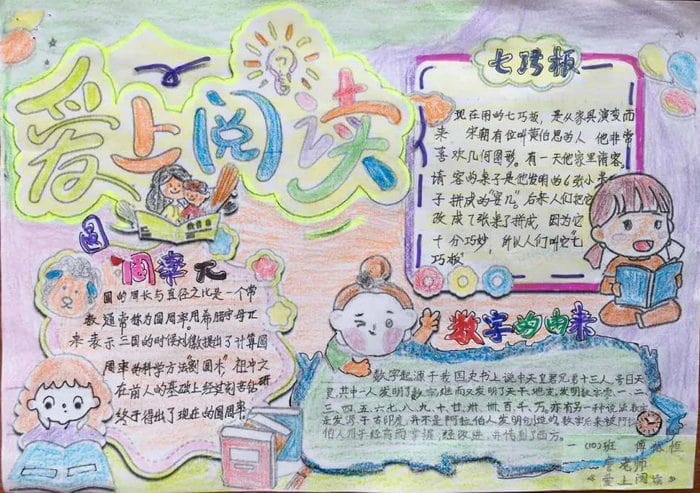 爱上阅读
七巧板
现在用的七巧板，是从家具演变而
来 宋朝有位叫黄伯思的人 他非常
喜欢几何图形，有一天他家里请客，
请客的桌子是他发明的6张小桌
子拼成的"宴几"。后来人们把它
改成了张桌子拼成，因为它
十分巧妙，所以人们叫它"七
巧板"
圆
圆率π
圆的周长与直径之比是一个常
数 通常称为圆周率用希腊字母π
来表示 三国的时候刘徽提出了计算圆
周率的科学方法"割圆术" 祖冲之
在前人的基础上经过刻苦钻研
终于得出了现在的圆周率
数学的由来
数字起源于我国史书上说中天皇君兄弟十三人，号曰天
灵，其中一人发明了数字
二
三、四、五、六、七、八、九、十、廿、卅、百、千、万，亦有另一种说法
是发源于古印度，并不是阿拉伯人发明创造的数字后来被阿拉
伯人用于经商而掌握，经改进，并传到了西方。
(10)班 傅
老师
《爱上阅读》